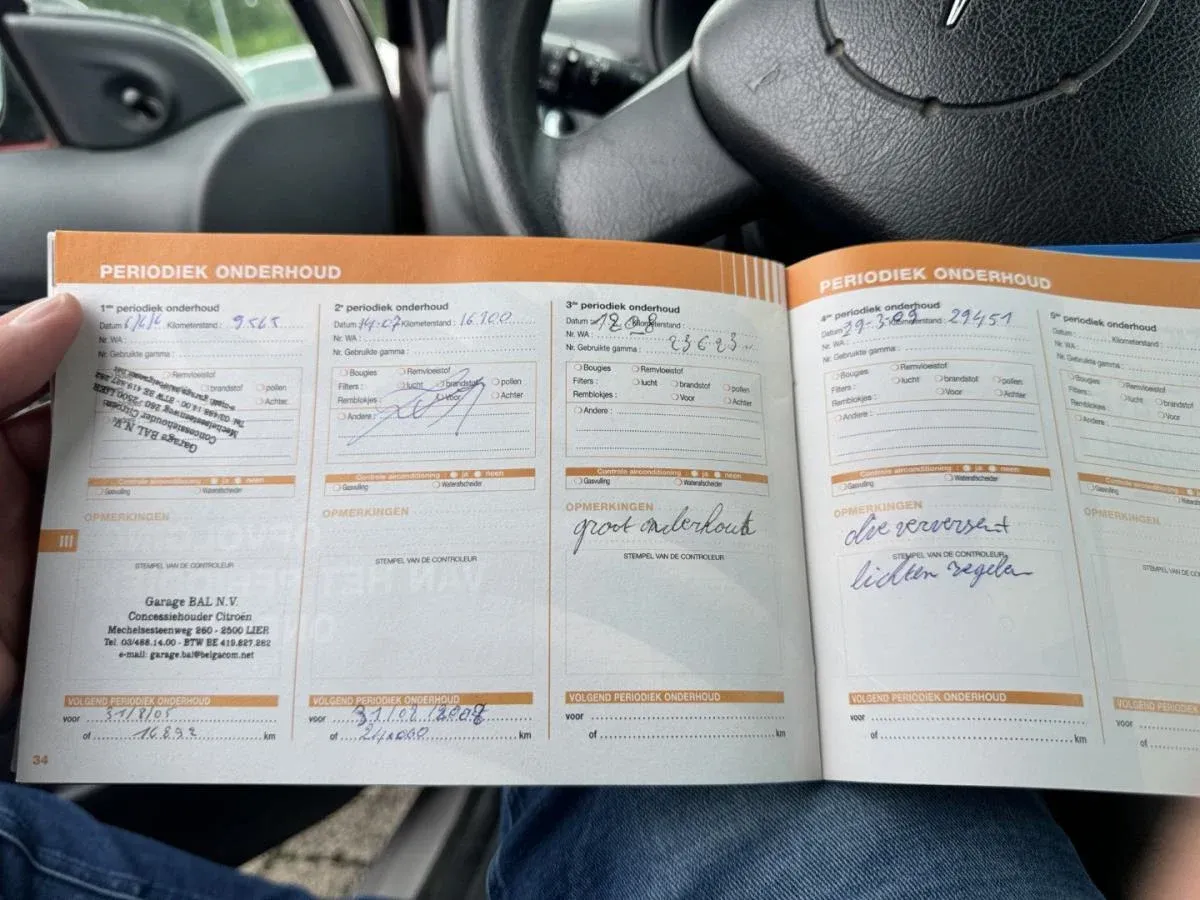 PERIODIEK ONDERHOUD
1ste periodiek onderhoud
Datum 6/6/6 Kilometerstand : 9565
Nr. WA :
Nr. Gebruikte gamma :
Remvloeistof
brandstof pollen
Achter
Garage BAL N.V.
Concessiehouder Citroën
Mechelsesteenweg 260 - 2500 LIER
Controle airconditioning : ja neen
Gasvulling Waterafscheider
OPMERKINGEN
STEMPEL VAN DE CONTROLEUR
Garage BAL N.V.
Concessiehouder Citroën
Mechelsesteenweg 260 - 2500 LIER
Tel. 03/488.14.00 - BTW BE 419.827.262
e-mail: garage.bal@belgacom.net
VOLGEND PERIODIEK ONDERHOUD
voor 31/8/05
of 16892 km
34
III
2e periodiek onderhoud
Datum 14-07 Kilometerstand : 16.900
Nr. WA :
Nr. Gebruikte gamma :
Bougies Remvloeistof
Filters : lucht brandstof pollen
Remblokjes : Voor Achter
Andere :
Controle airconditioning : ja neen
Gasvulling Waterafscheider
OPMERKINGEN
STEMPEL VAN DE CONTROLEUR
VOLGEND PERIODIEK ONDERHOUD
voor 31/08/2008
of 24.000 km
3de periodiek onderhoud
Datum 1208 Kilometerstand :
Nr. WA : 23623
Nr. Gebruikte gamma :
Bougies Remvloeistof
Filters : lucht brandstof pollen
Remblokjes : Voor Achter
Andere :
Controle airconditioning : ja neen
Gasvulling Waterafscheider
OPMERKINGEN
groot onderhoud
STEMPEL VAN DE CONTROLEUR
VOLGEND PERIODIEK ONDERHOUD
voor
of km
PERIODIEK ONDERHOUD
4de periodiek onderhoud
Datum 29-3-09 Kilometerstand : 29451
Nr. WA :
Nr. Gebruikte gamma :
Bougies Remvloeistof
Filters : lucht brandstof pollen
Remblokjes : Voor Achter
Andere :
Controle airconditioning : ja neen
Gasvulling Waterafscheider
OPMERKINGEN
olie ververst
STEMPEL VAN DE CONTROLEUR
lichten regelen
VOLGEND PERIODIEK ONDERHOUD
voor
of km
periodiek onderhoud
Datum : Kilometerstand :
Nr. WA :
Nr. Gebruikte gamma :
Bougies Remvloeistof
Filters : lucht brandstof
Remblokjes : Voor
Andere :
Controle airconditioning :
Gasvulling
OPMERKINGEN
STEMPEL VAN DE CO
VOLGEND PERIODIEK ONDERHO
voor
of